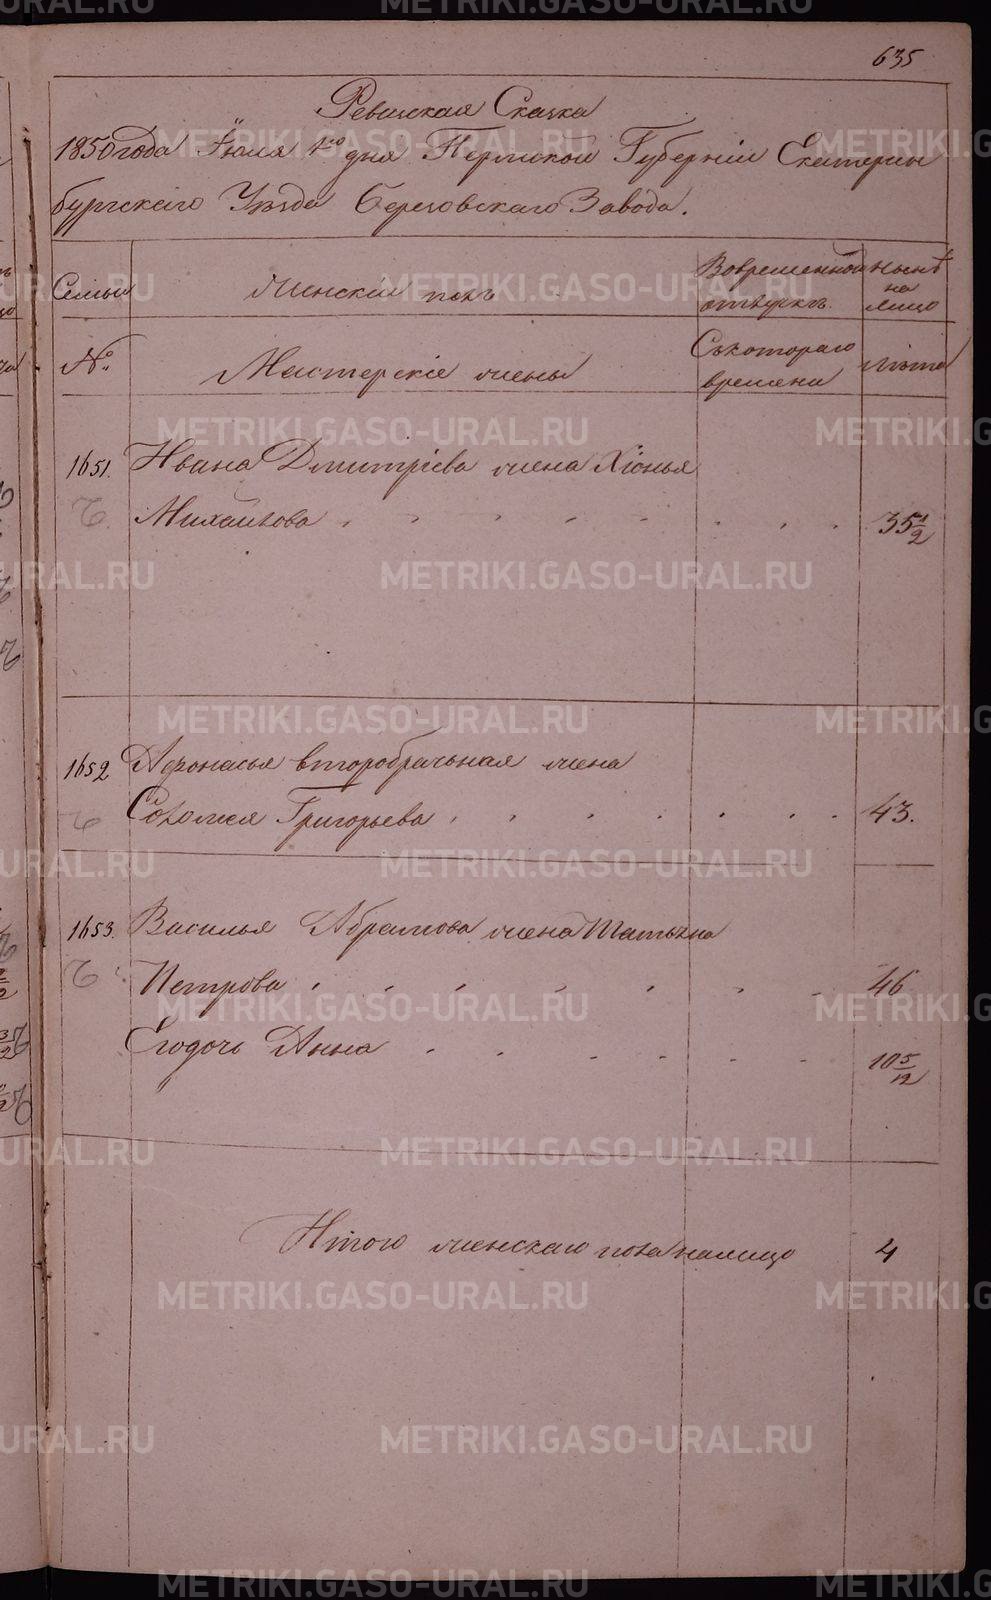 635
Ревизская Сказка
1850 года Іюля 1го дня Пермской Губерніи Екатерин
бургскаго Уѣзда Березовскаго Завода.
Семьи
Женскій полъ
Вовременной
отлучкѣ.
Нынѣ
на
лицо
№
Мастерскіе жены
Съкотораго
времени
лѣта
1651. Ивана Дмитріева жена Хіонья
Михайлова 35 1/2
1652 Афонасья второбрачная жена
Соломея Григорьева 43.
1653. Василья Абрамова жена Татьяна
Петрова 46
Егодочь Анна 10 5/12
Итого женскаго пола налицо 4
METRIKI.GASO-URAL.RU